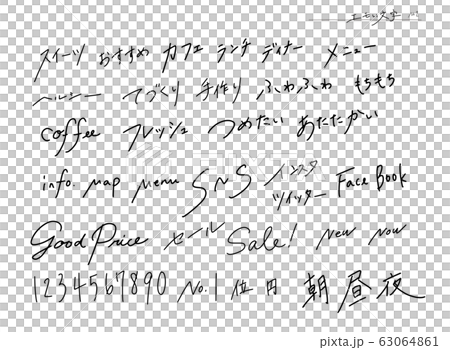 スイーツ おすすめ カフェ ランチ ディナー メニュー
ヘルシー てづくり 手作り ふわふわ もちもち
coffee フレッシュ つめたい あたたかい
info. map menu SNS インスタ ツイッター FaceBook
Good Price セール Sale! New Now
1234567890 No.1 位 円 朝 昼 夜
PIXTA
63064861